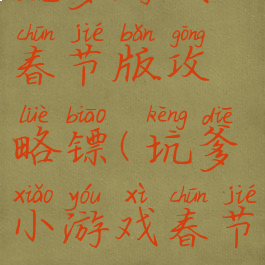 chūn jié bǎn gōng
春节版攻
lüè biāo kēng diē
略镖(坑爹
xiǎo yóu xì chūn jié
小游戏春节